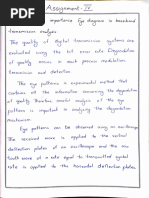 Assignment - IV
importance Eye diagram in baseband
transmission analysis
The quality of digital transmission systems are
evaluated using the bit error rate. Degradation
of quality occurs in each process modulation
transmission and detection
The eye pattern is experimental method that
contains all the information concerning the degradation
of quality. Therefore careful analysis of the eye
pattern is important in analyzing the degradation
mechanism.
Eye patterns can be observed using an oscilloscope.
The received wave is applied to the vertical
deflection plates of an oscilloscope and the saw
tooth wave at a rate equal to transmitted symbol
rate is applied to the horizontal deflection plates